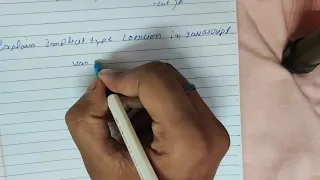 explain Implicit type Coercion in Javascript
var